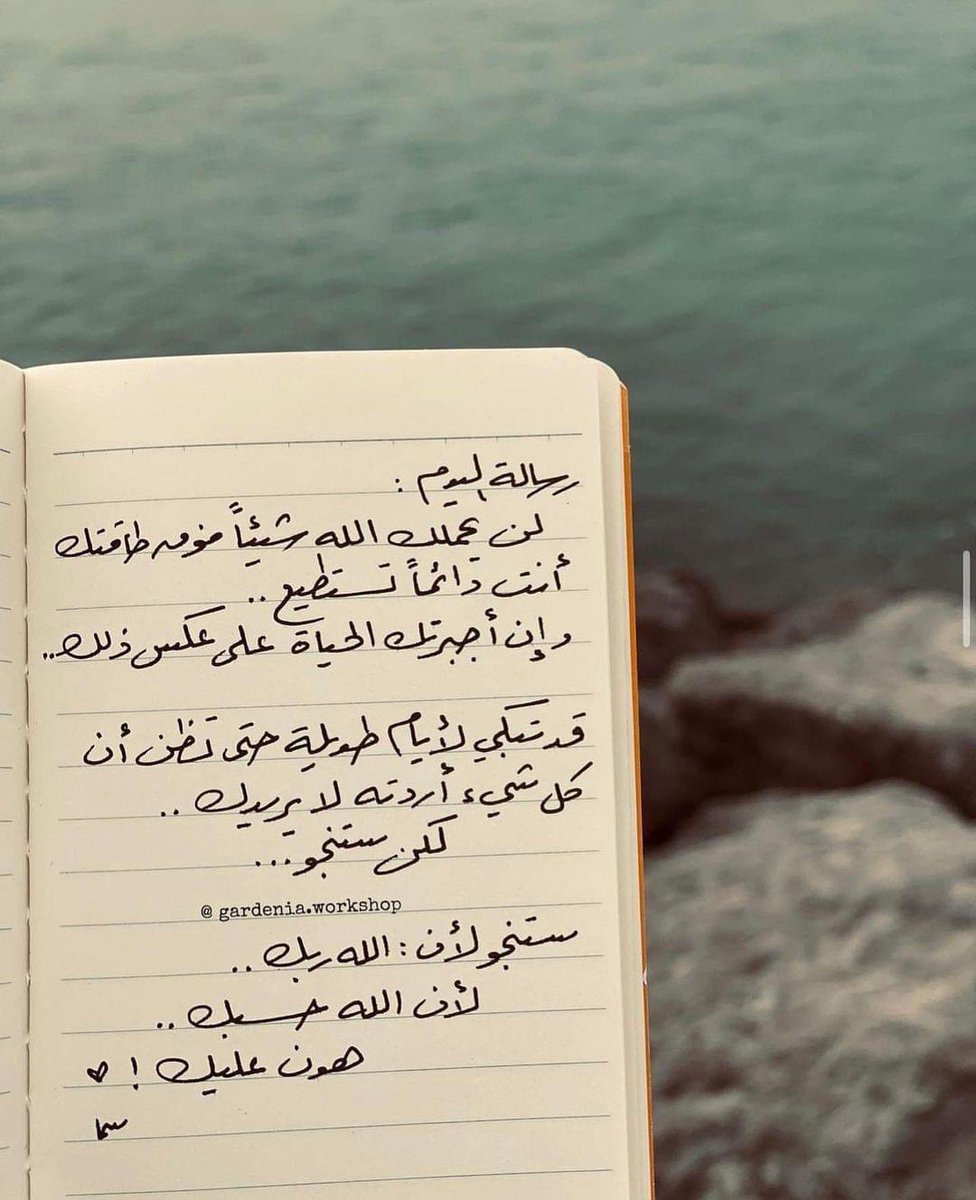 رسالة اليوم :
لن يحملك الله شيئاً فوق طاقتك
أنت دائماً تستطيع ..
وإن أجبرتك الحياة على عكس ذلك..
قد تبكي لأيام طويلة حتى تظن أن
كل شيء أردته لا يريدك ..
لكن ستنجو...
@ gardenia.workshop
ستنجو لأن : الله ربك ..
لأن الله حسبك ..
هون عليك ! ♥
سما